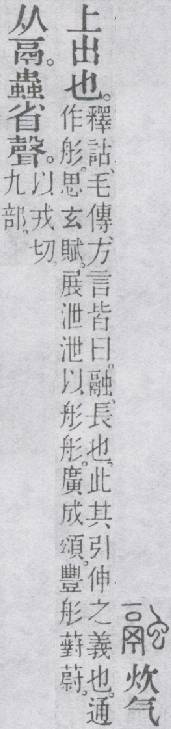 融 炊气
上出也。釋詁、毛傳、方言皆曰。融、長也。此其引伸之義也。通
作肜。思玄賦。展泄泄以肜肜。廣成頌。豐肜薱蔚。
从鬲。蟲省聲。以戎切。
九部。